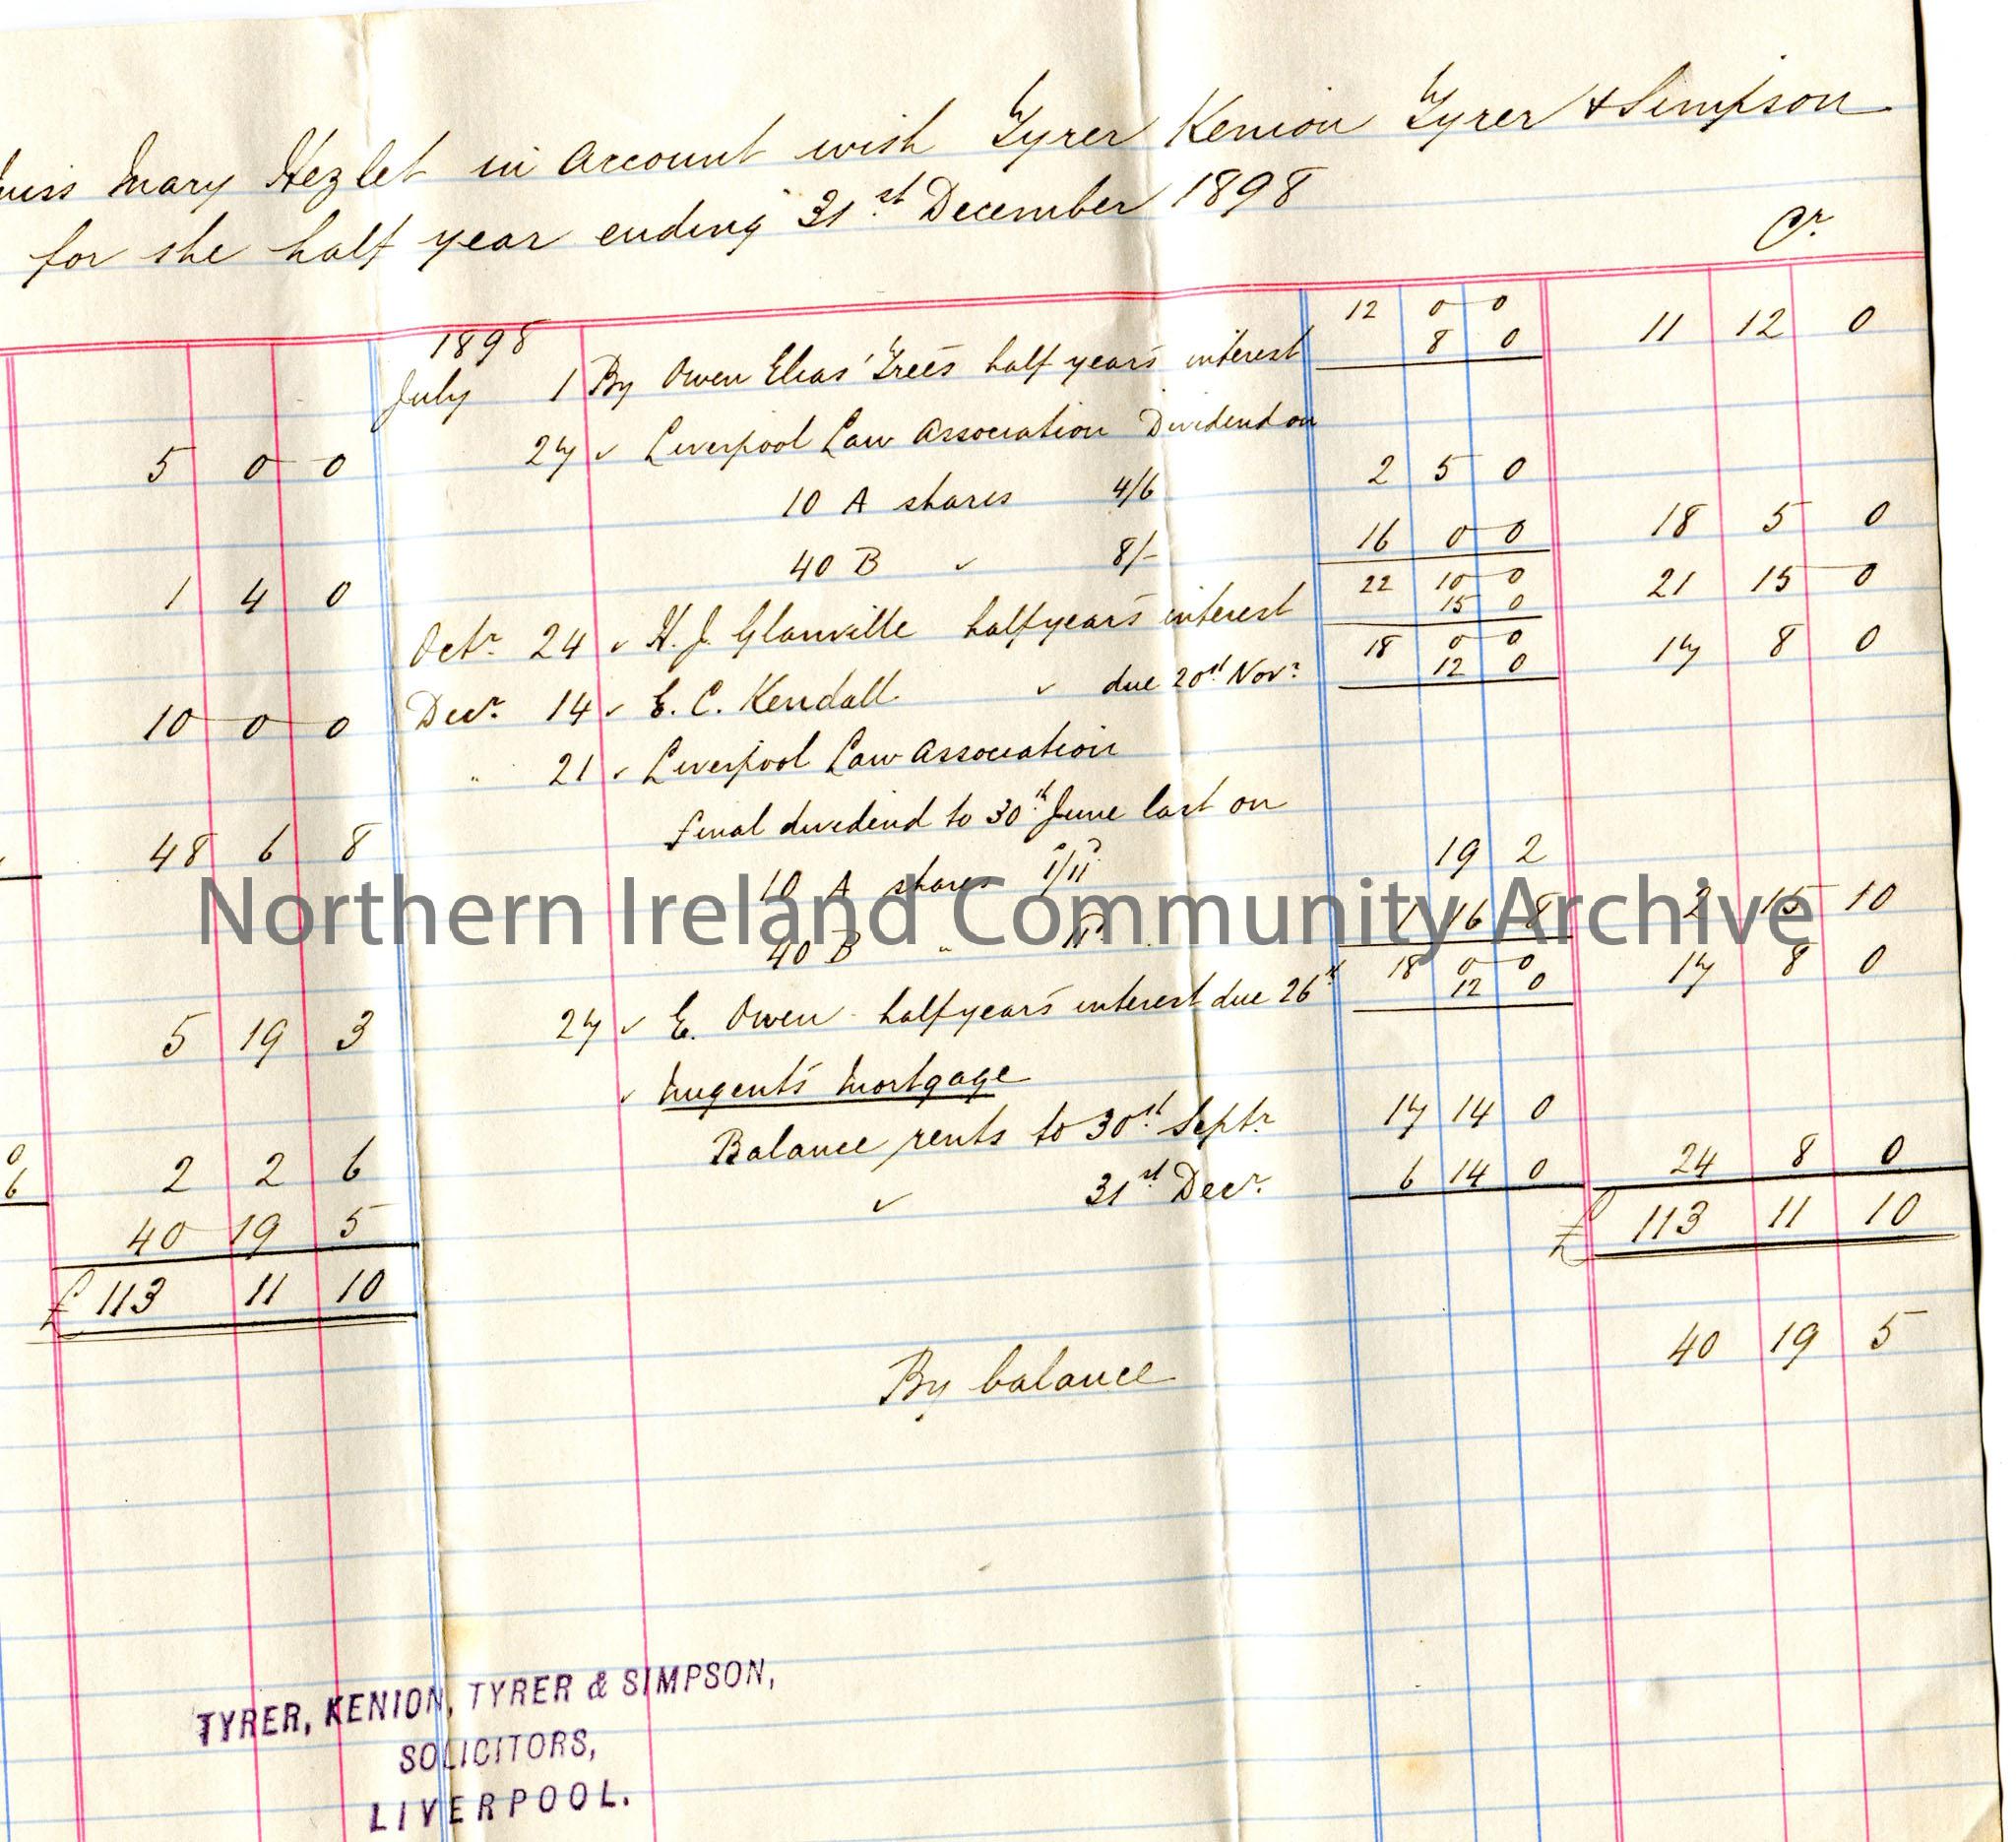 Miss Mary Hezlet in Account with Tyrer Kenion Tyrer & Simpson
for the half year ending 31st December 1898
Cr
1898
July 1 By Owen Elias' Trees half years interest 12 0 0
8 0 11 12 0
27 " Liverpool Law Association Dividend on
10 A shares 4/6 2 5 0
40 B " 8/- 16 0 0 18 5 0
Octr. 24 " H. J. Glanville half years interest 22 10 0
15 0 21 15 0
Decr. 14 " E. C. Kendall " due 20th Novr. 18 0 0
12 0 17 8 0
" 21 " Liverpool Law Association
final dividend to 30th June last on
10 A shares 1/11 19 2
40 B " 11D 1 16 8 2 15 10
27 " E. Owen half years interest due 26th 18 0 0
12 0 17 8 0
" Nugent's Mortgage
Balance rents to 30th Septr. 17 14 0
" 31st Decr. 6 14 0 24 8 0
£ 113 11 10
By balance 40 19 5
5 0 0
1 4 0
10 0 0
48 6 8
5 19 3
0
6 2 2 6
40 19 5
£ 113 11 10
Northern Ireland Community Archive
TYRER, KENION, TYRER & SIMPSON,
SOLICITORS,
LIVERPOOL.